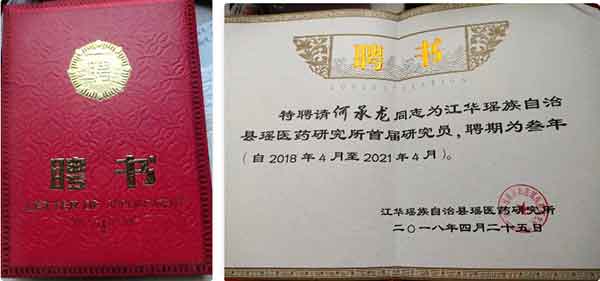 聘
聘书
LETTER OF APPOINTMENT
聘书
特聘请何承龙同志为江华瑶族自治
县瑶医药研究所首届研究员，聘期为叁年
（自2018年4月至2021年4月）。
江华瑶族自治县瑶医药研究所
二〇一八年四月二十五日